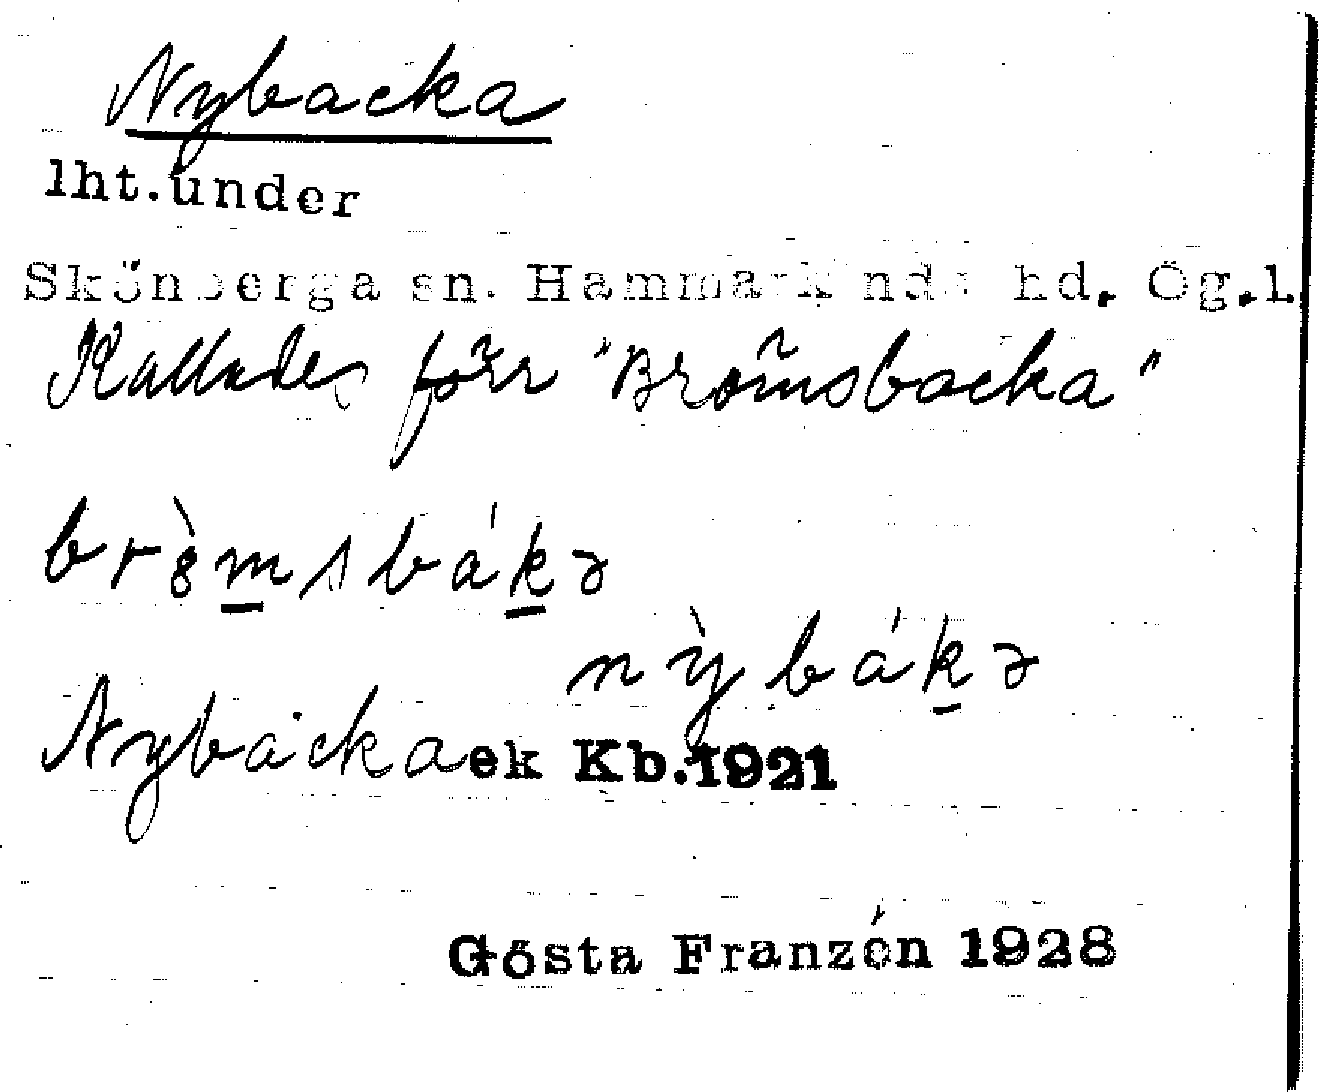 Nybacka
lht. under
Skönberga sn. Hammarkinds hd. Ög.l.
Kallades förr "Brömsbacka"
brö̀msbákə
nỳbákə
Nybacka ek Kb. 1921
Gösta Franzén 1928